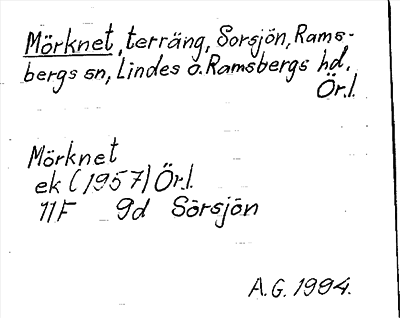 Mörknet, terräng, Sorsjön, Rams-
bergs sn, Lindes o. Ramsbergs hd.
Ör.l.
Mörknet
ek (1957) Ör.l.
11F 9d Sörsjön
A.G. 1994.